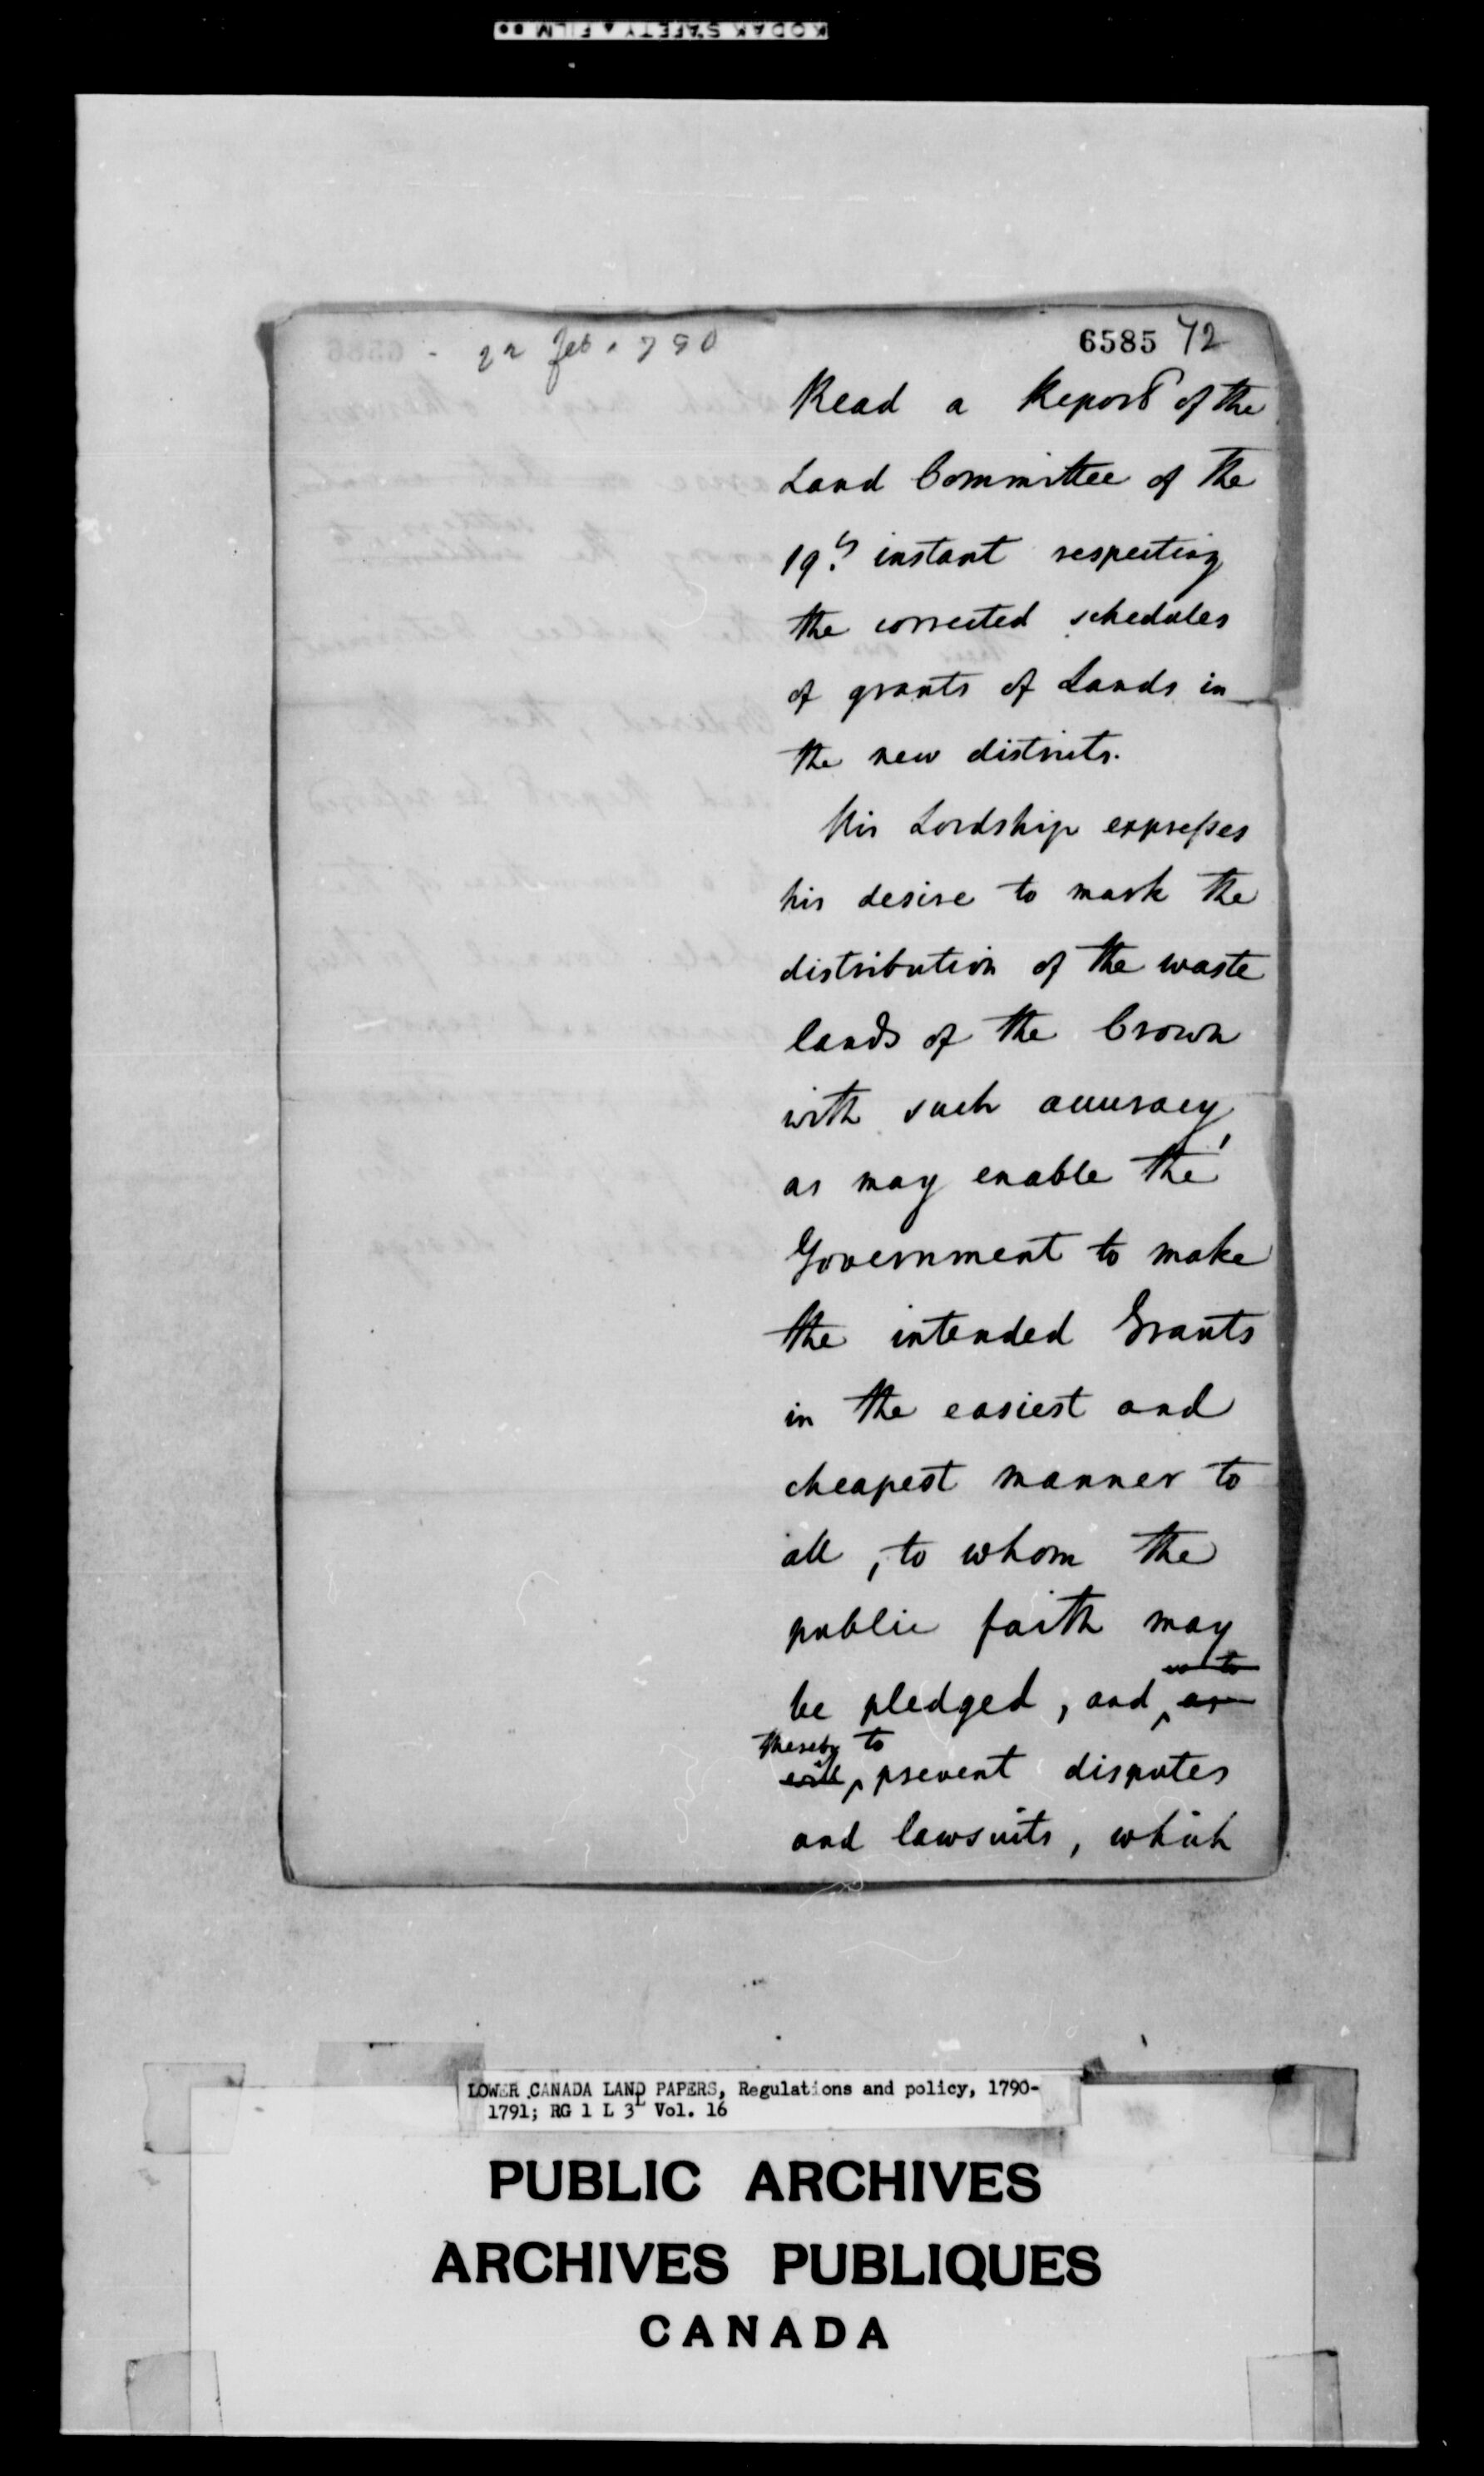 KODAK SAFETY FILM
22 feb. 790
6585 72
Read a Report of the
Land Committee of the
19th instant respecting
the corrected schedules
of grants of Lands in
the new districts.
His Lordship expresses
his desire to mark the
distribution of the waste
lands of the Crown
with such accuracy,
as may enable the
Government to make
the intended Grants
in the easiest and
cheapest manner to
all, to whom the
public faith may
be pledged, and as
thereby to
will prevent disputes
and lawsuits, which
LOWER CANADA LAND PAPERS, Regulations and policy, 1790-
1791; RG 1 L 3L Vol. 16
PUBLIC ARCHIVES
ARCHIVES PUBLIQUES
CANADA